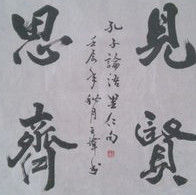 見賢
思齊
孔子論語里仁句
壬辰年秋月王偉書